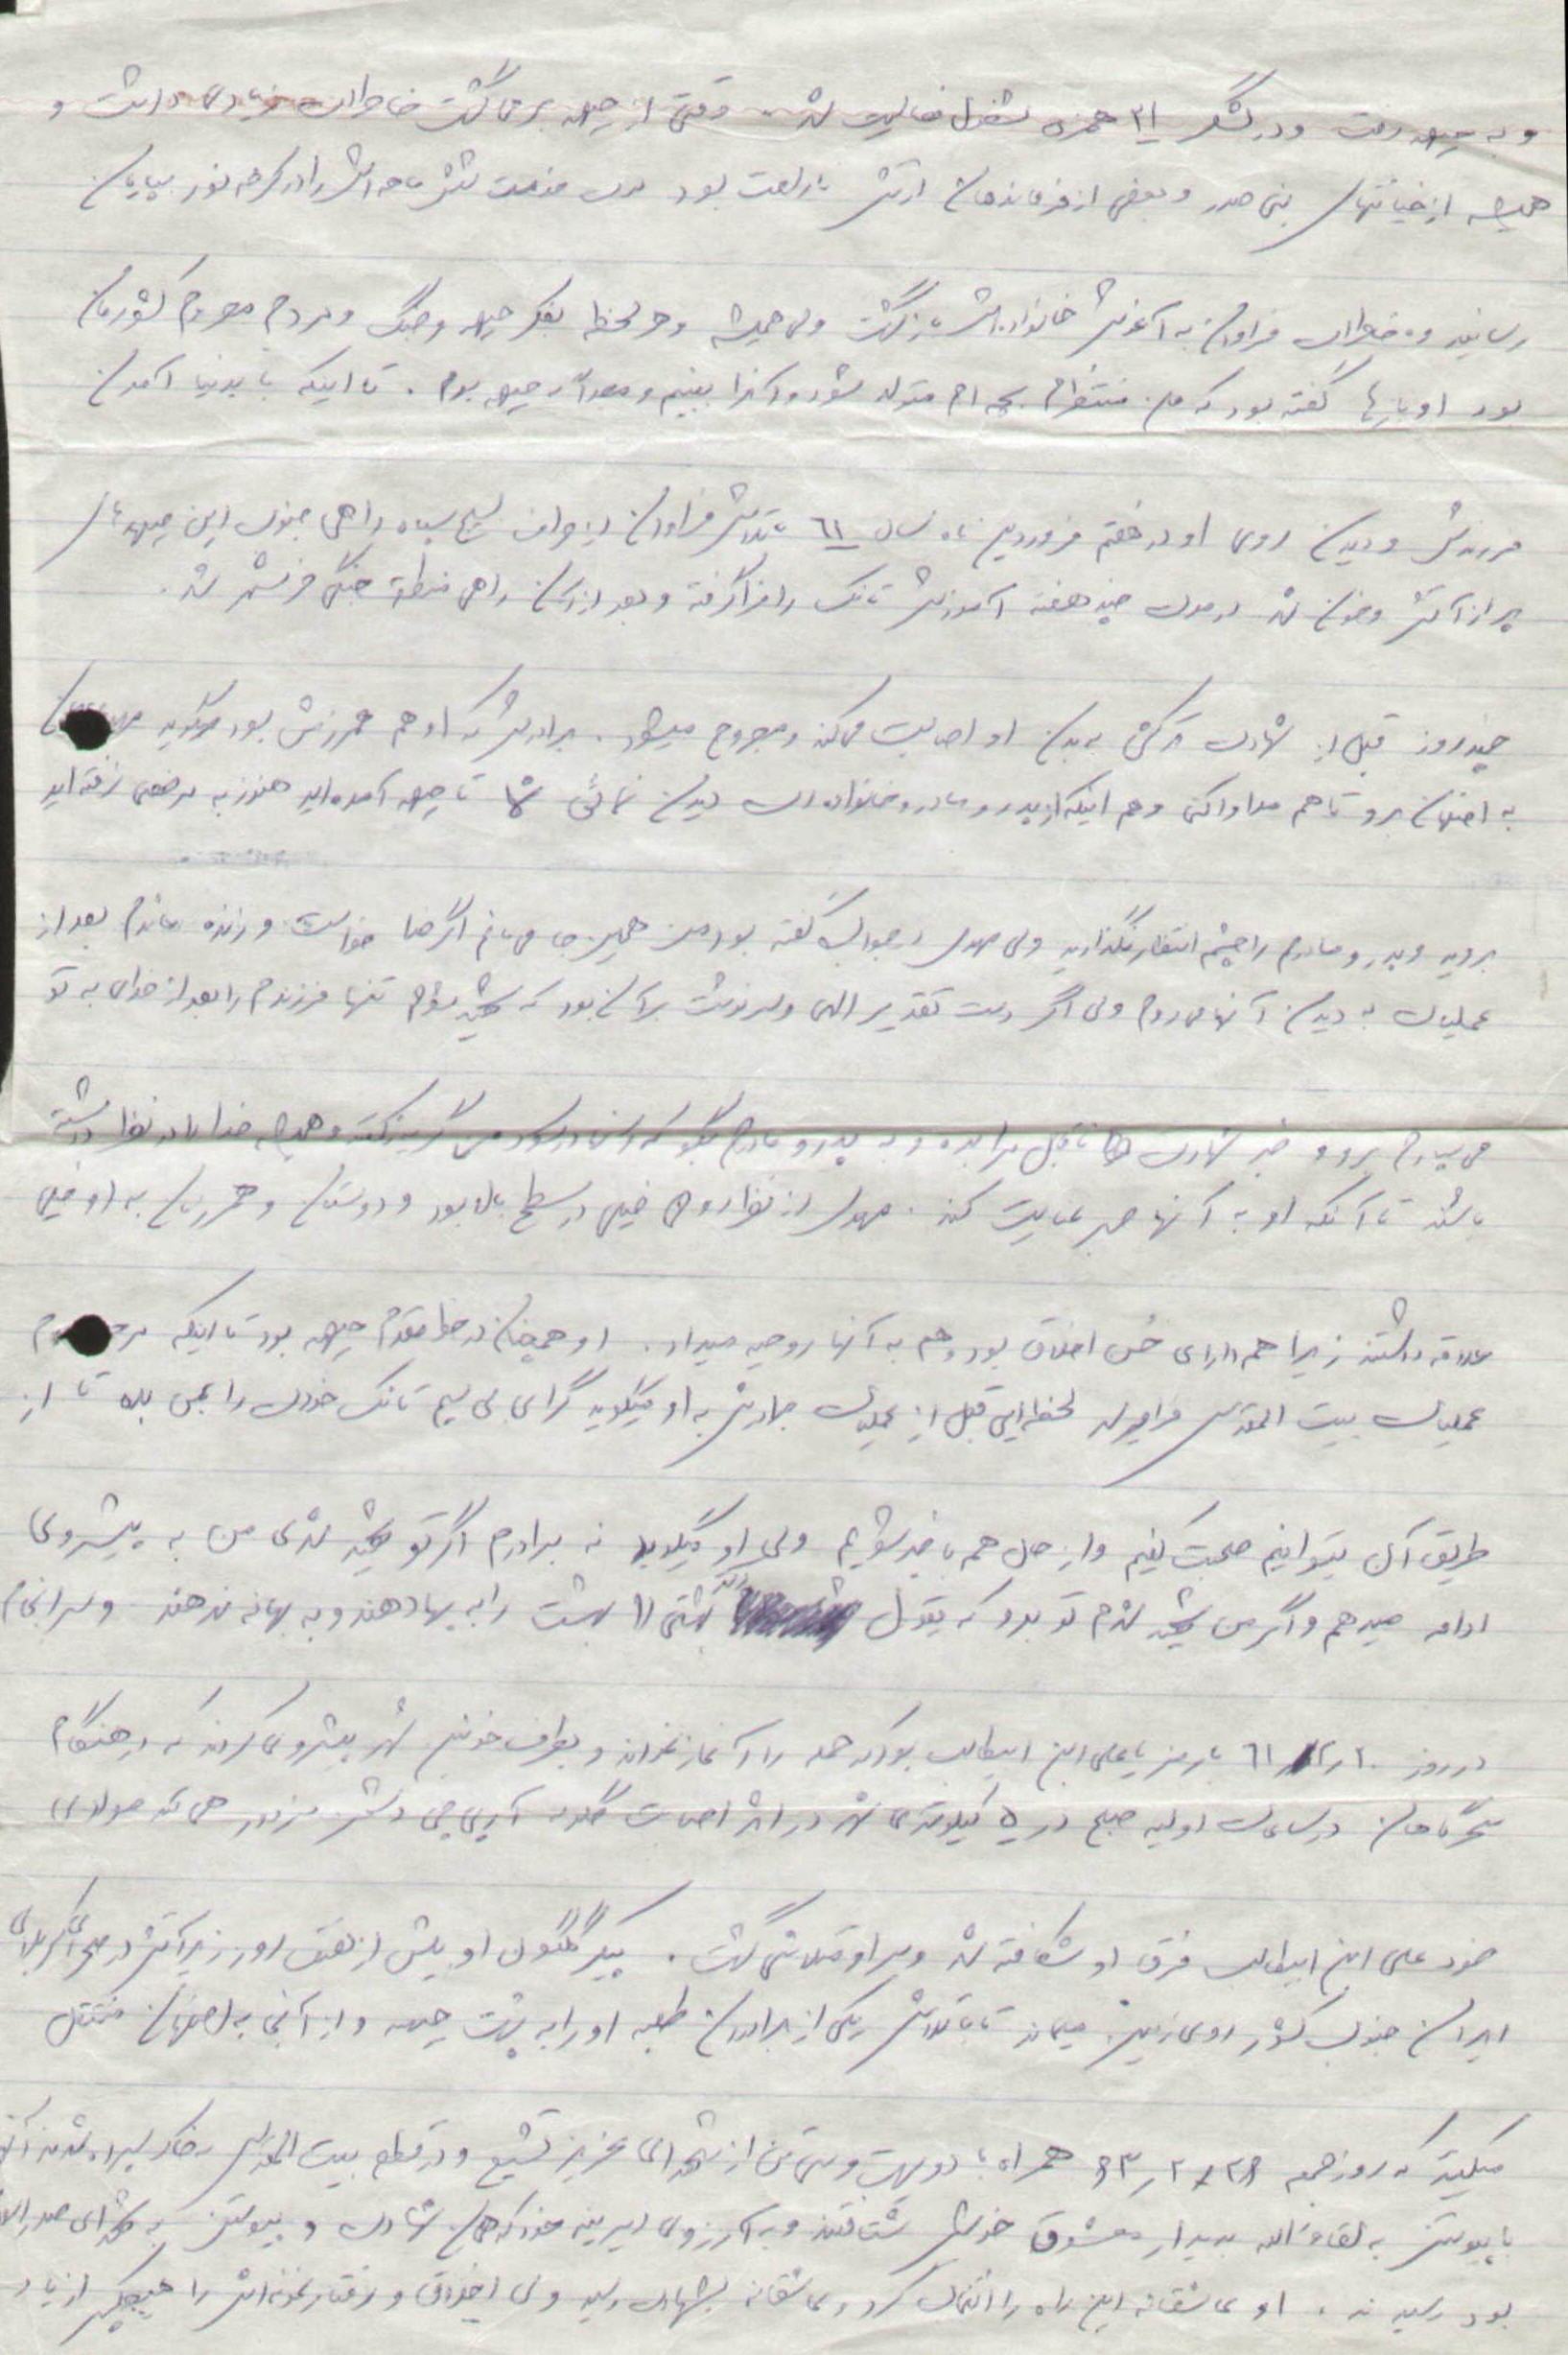 و به جبهه رفت و در لشگر ۲۱ حمزه مشغول فعالیت شد. وقتی از جبهه برمی گشت خاطرات زیادی داشت و
همیشه از خیانتهای بنی صدر و بعضی از فرماندهان ارتش ناراحت بود مدت خدمت شش ماهه اش را در کرخه نور بپایان
رسانید و با خاطرات فراوان به آغوش خانواده اش بازگشت ولی همیشه و هر لحظه بفکر جبهه و جنگ و مردم محروم کشورمان
بود او بارها گفته بود که من منتظرم بچه ام متولد شود و آنرا ببینم و مجدداً به جبهه بروم . تا اینکه با بدنیا آمدن
فرزندش و دیدن روی او در هفتم فروردین ماه سال ۶۱ با تلاش فراوان از طرف بسیج سپاه راهی جنوب این جبهه های
پر از آتش و خون شد در مدت چند هفته آموزش تانک را فرا گرفته و بعد از آن راهی منطقه جنگی خرمشهر شد .
چند روز قبل از شهادت ترکشی به بدن او اصابت میکند و مجروح میشود . برادرش که او هم همرزمش بود میگوید
به اصفهان برو تا هم مداوا کنی و هم اینکه از پدر و مادر و خانواده ات دیدن نمائی شما تا جبهه آمده اید هنوز به مرخصی نرفته اید
بروید و پدر و مادرم را چشم انتظار نگذارید ولی مهدی در جوابش گفته بود من همین جا می مانم اگر خدا خواست و زنده ماندم بعد از
عملیات به دیدن آنها می روم ولی اگر دست تقدیر الهی و سرنوشت بر آن بود که شهید شوم تنها فرزندم را بعد از خدای به تو
می سپارم برو و خبر شهادت ما قبل مرا بده و به پدر و مادرم بگو که من گریه نکنند و همیشه خدا را در نظر داشته
باشند تا آنکه او به آنها صبر عنایت کند . مهدی از نظر روحی خیلی در سطح بالا بود و دوستان و همرزمان به او خیلی
علاقه داشتند زیرا هم دارای حُسن اخلاق بود و هم به آنها روحیه میداد . او همچنان در خط مقدم جبهه بود تا اینکه مرحله
عملیات بیت المقدس فرا میرسد لحظه ایی قبل از عملیات برادرش به او میگوید گرای بی سیم تانک خودت را بمن بده تا از
طریق آن بتوانیم صحبت کنیم و از حال هم باخبر شویم ولی او میگوید نه برادرم اگر تو شهید شدی من به پیشروی
ادامه میدهم و اگر من شهید شدم تو برو که بقول بهشتی (( بهشت را به بها دهند و به بهانه ندهند و سرانجام
در روز ۶۱ با رمز یا علی ابن ابیطالب بود که حمله را آغاز نمودند و بطرف خونین شهر پیشروی کردند که در هنگام
سحرگاهان در ساعات اولیه صبح در ۵ کیلومتری شهر در اثر اصابت گلوله آرپی جی دشمن مزدور همانند مولای
خود علی ابن ابیطالب فرق او شکافته شد و سر او متلاشی گشت . پیکر گلگون او بیش از هفت روز زیر آتش در صحرای کربلای
ایران جنوب کشور روی زمین میماند تا با تلاش یکی از برادران طلبه او را به پشت جبهه و از آنجا به اصفهان منتقل
میکنند که روز جمعه همراه با دویست و سی تن از شهدای عزیز تشییع و در قطعه بیت المقدس بخاک سپرده شدند
با پیوستن به لقاءالله بدیدار معشوق خویش شتافتند و به آرزوی دیرینه خود که همان شهادت و پیوستن به شهدای صدر
بود رسیدند . او عاشقانه این راه را انتخاب کرد و عاشقانه بشهادت رسید ولی اخلاق و رفتار نمونه اش را هیچکس از یاد